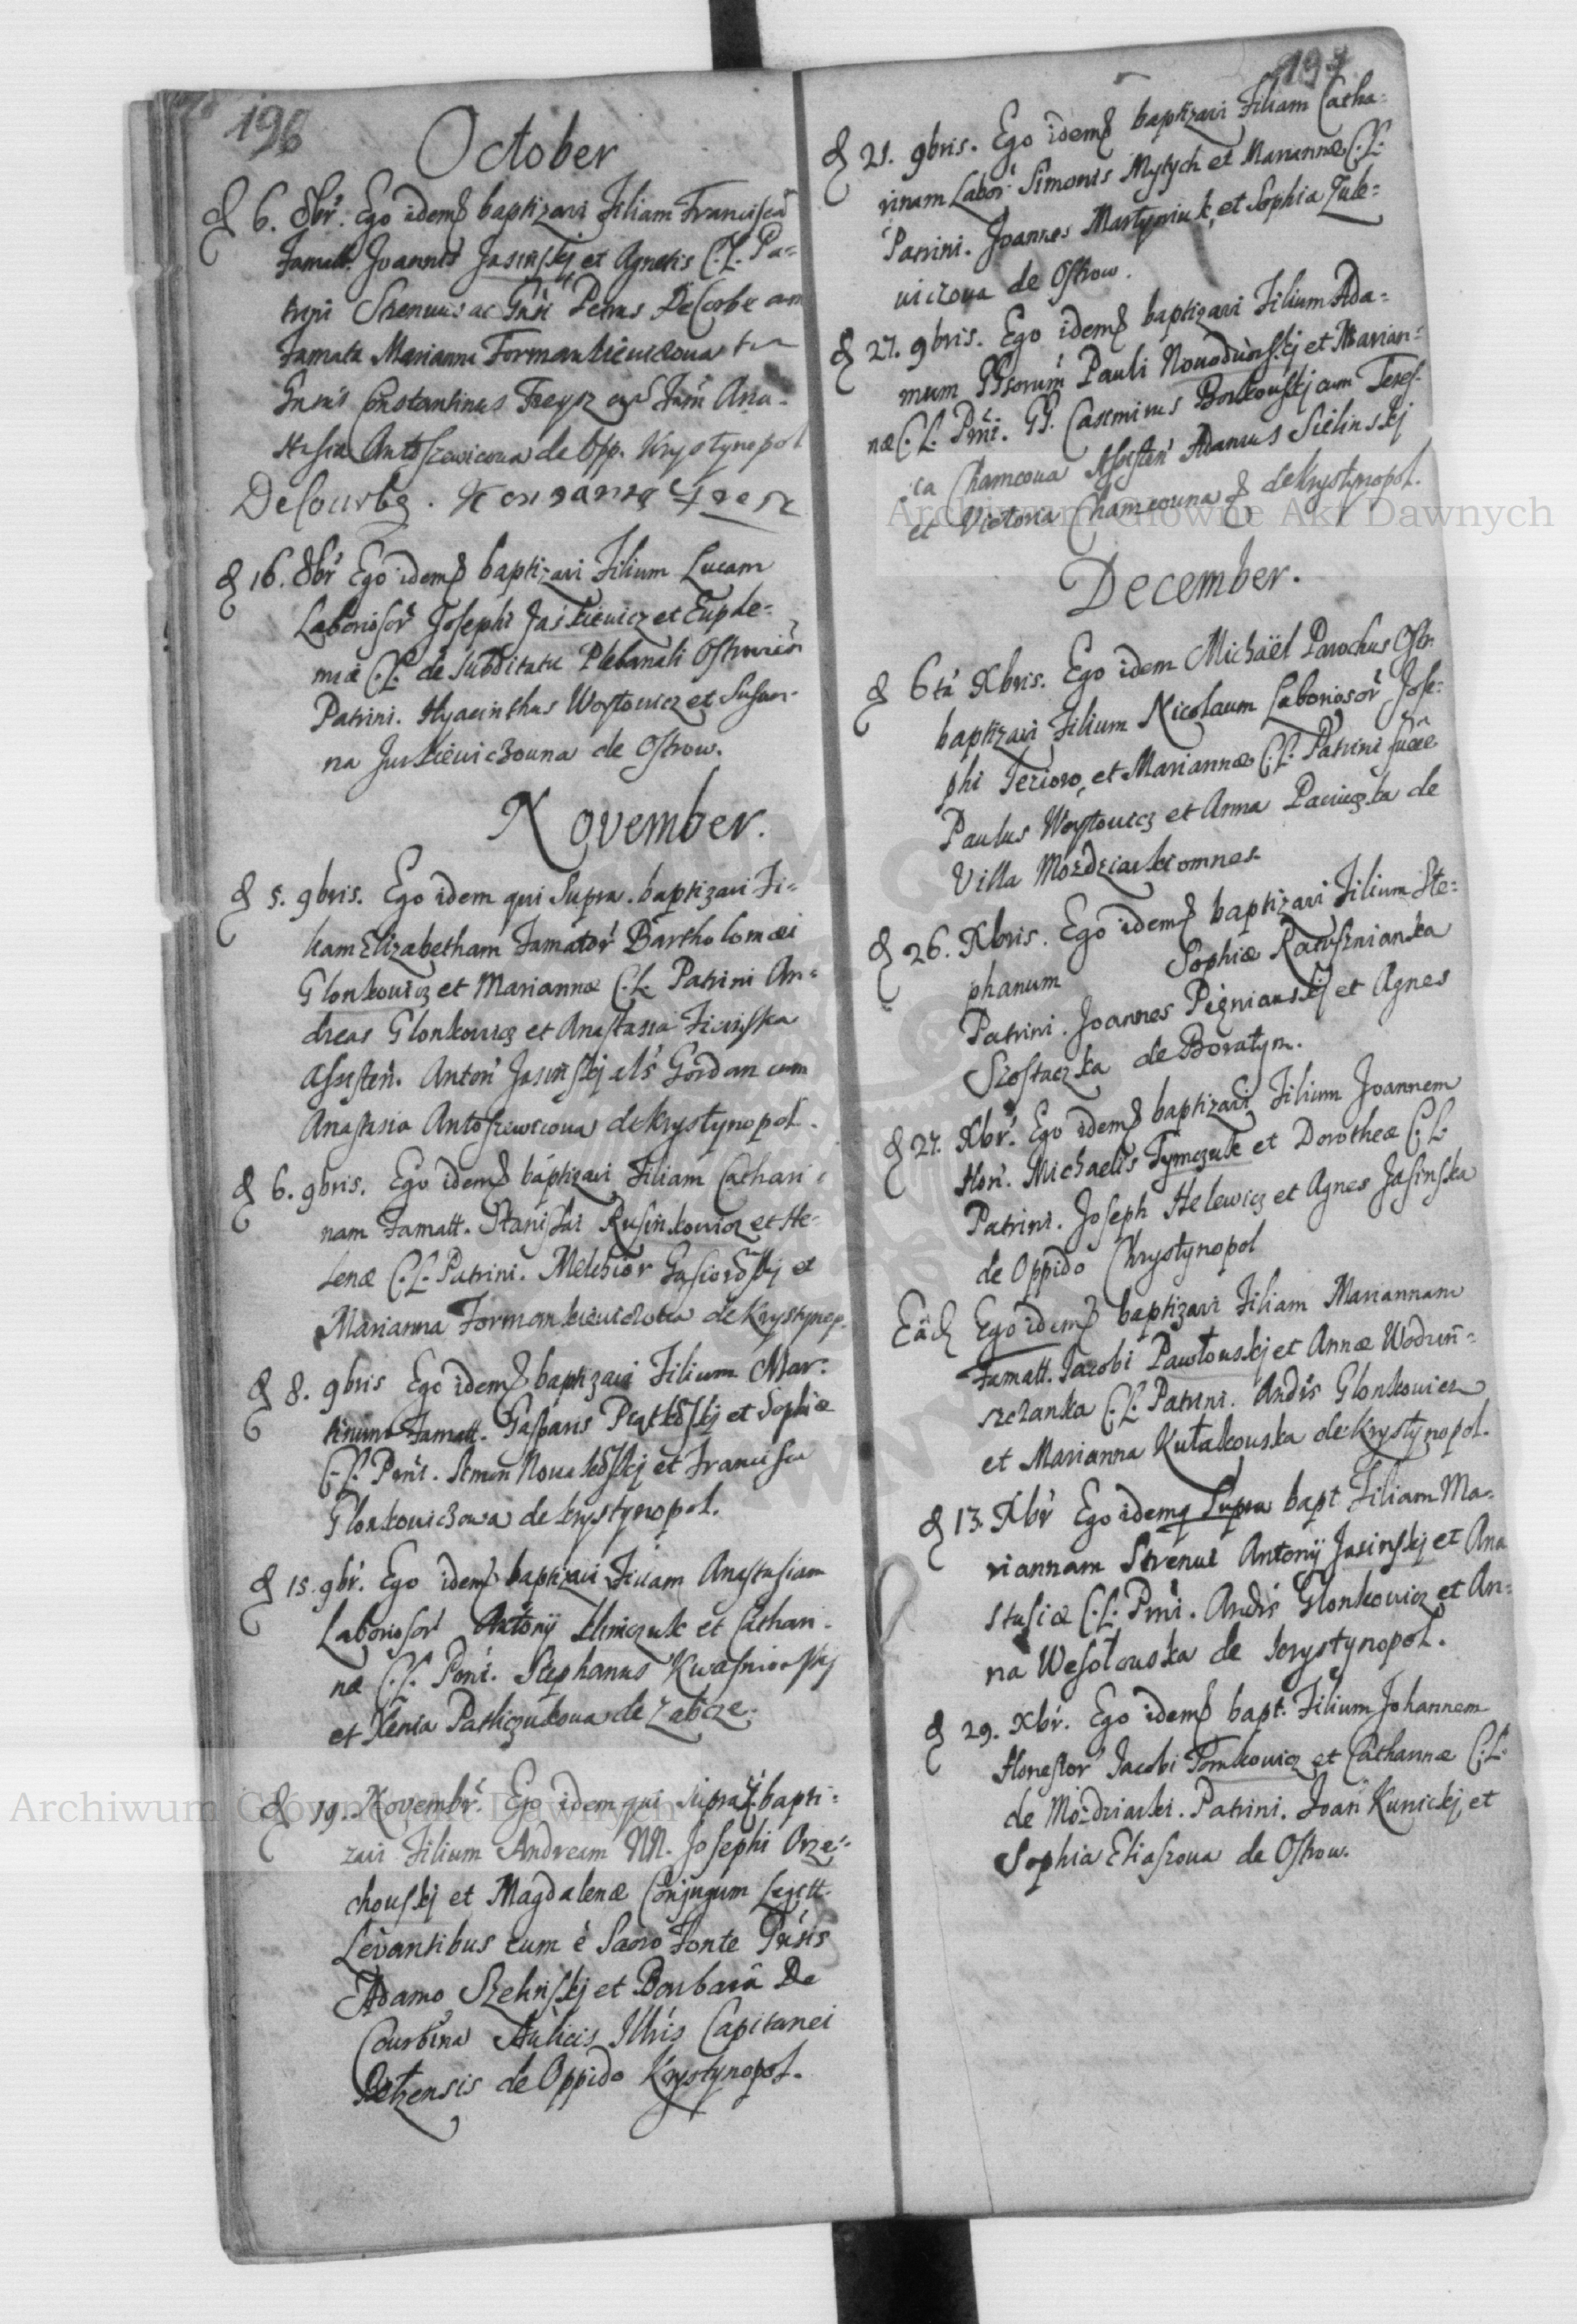 196
October
d 6. 8br. Ego idem q baptizavi Filiam Franciscã
Famatt. Joannis Jasinskj et Agnetis C.L. Pa=
trini Strenuus ac Gnsi Petrus DeCorbe cum
Famata Marianna Formankiewiczowa
Gnsus Constantinus Freysz cum Fam Ana-
stasia Antoszewicowa de Opp. Krystynopol
DeCourbe.
d 16. 8br Ego idem q baptizavi Filium Lucam
Laboriosor Josephi Jaskiewicz et Euphe=
miæ C.L. de Subditatu Plebanali Ostrovien
Patrini. Hyacinthus Woytowicz et Susan-
na Jurkiewiczouna de Ostrow.
November.
d 5. 9bris. Ego idem qui Supra baptizavi Fi=
liam Elizabetham Famator Bartholomæi
Glonkowicz et Mariannæ C.L. Patrini An=
dreas Glonkowicz et Anastasia Ficinska
Assisten. Anton Jasinskj als Gordan cum
Anastasia Antoszewicowa de Krystynopol.
d 6. 9bris. Ego idem q baptizavi Filiam Cathari=
nam Famatt. Stanislai Rusinkowicz et He-
lenæ C.L. Patrini. Melchior Gasioroskj et
Marianna Formankiewiczowa de Krystynop.
d 8. 9bris Ego idem q baptizavi Filium Mar-
tinum Famatt. Gasparis Piątkoskj et Sophiæ
C.L. Pnni. Simon Nowakoskj et Francisca
Glonkowiczowa de Krystynopol.
d 15. 9br. Ego idem q baptizavi Filiam Anastasiam
Laboriosor Antonij Klimczuk et Cathari-
næ C.L. Pnni. Stephanus Kwasniowskj
et Xenia Pasliczukowa de Zabcze.
d 19. Novembr. Ego idem qui supra bapti=
zavi Filium Andream NN. Josephi Orze=
chouskj et Magdalenæ Conjugum Legitt.
Levantibus eum è Sacro Fonte Gnsis
Adamo Szelinskj et Barbara De
Courbina Aulicis Illris Capitanei
Belzensis de Oppido Krystynopol.
197
d 21. 9bris. Ego idem q baptizavi Filiam Catha=
rinam Labor. Simonis Mytych et Mariannæ C.L.
Patrini. Joannes Martyniuk, et Sophia Zule=
wiczowa de Ostrow.
d 27. 9bris. Ego idem q baptizavi Filium Ada=
mum GGsorum Pauli Nowodworskj et Marian=
næ C.L. Pnni. GG. Casimirus Borkouskj cum Teres-
ia Chamcowa Assisten Adamus Sielinskj
et Victoria Chamcowna q de Krystynopol.
December.
d 6ta Xbris. Ego idem Michaël Parochus Ostr.
baptizavi Filium Nicolaum Laboriosor Jose=
phi Jezioro, et Mariannæ C.L. Patrini fuere
Paulus Woytowicz et Anna Paciuczka de
Villa Mozdziarki omnes.
d 26. Xbris. Ego idem q baptizavi Filium Ste=
phanum Sophiæ Ratusznianka
Patrini. Joannes Pigniauskj et Agnes
Szostaczka de Boratyn.
d 27. Xbr. Ego idem q baptizavi Filium Joannem
Hon. Michaelis Tymczuk et Dorotheæ C.L.
Patrini. Joseph Helewicz et Agnes Jasinska
de Oppido Chrystynopol
Eãd Ego idem q baptizavi Filiam Mariannam
Famatt. Jacobi Pawłouskj et Annæ Wodzin=
szczanka C.L. Patrini. Andrs Glonkowicz
et Marianna Kułakouska de Krystynopol.
d 13. Xbr Ego idem q Supra bapt Filiam Ma-
riannam Strenui Antonij Jasinskj et Ana
stasiæ C.L. Pnni. Andrs Glonkowicz et An=
na Wesołouska de Krystynopol.
d 29. Xbr. Ego idem q bapt. Filium Johannem
Honestor Jacobi Tomkowicz et Catharinæ C.L.
de Mozdziarki. Patrini. Joan Kunickj, et
Sophia Eliaszowa de Ostrow.
Archiwum Główne Akt Dawnych
Archiwum Główne Akt Dawnych